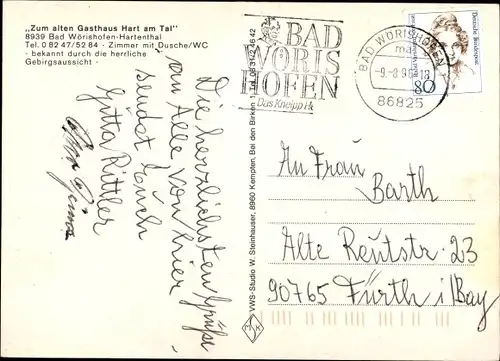 „Zum alten Gasthaus Hart am Tal"
8939 Bad Wörishofen-Hartenthal
Tel. 0 82 47/52 84 - Zimmer mit Dusche/WC
- bekannt durch die herrliche
Gebirgsaussicht -
Die herzlichsten Grüße
an Alle von hier
sendet Euch
Gitta Rittler
VWS-Studio W. Steinhauser, 8960 Kempten, Bei den Birken
BAD
WÖRIS
HOFEN
Das Kneipp
BAD WÖRISHOFEN
86825
Deutsche Bundespost
80
An Frau
Barth
Alte Reutstr. 23
90765 Fürth i/Bay